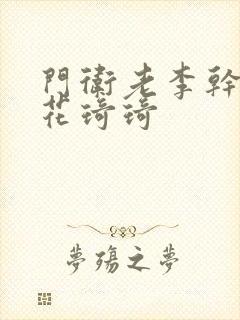 門衛老李幹
花琦琦
夢殤之夢